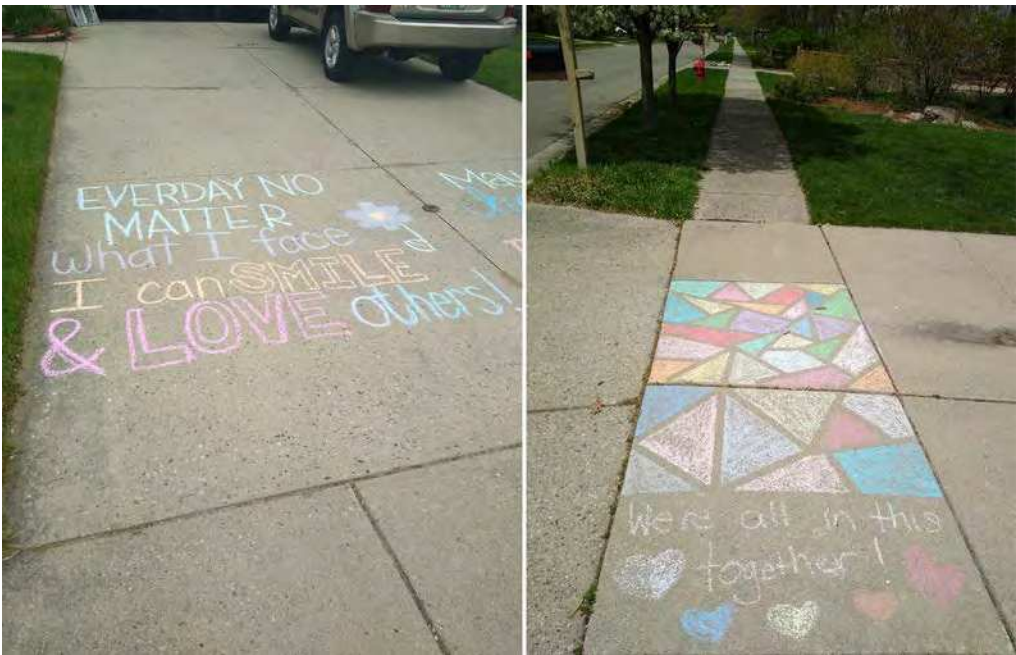 EVERDAY NO
MATTER
what I face
I can SMILE
& LOVE others!
We're all in this
together!